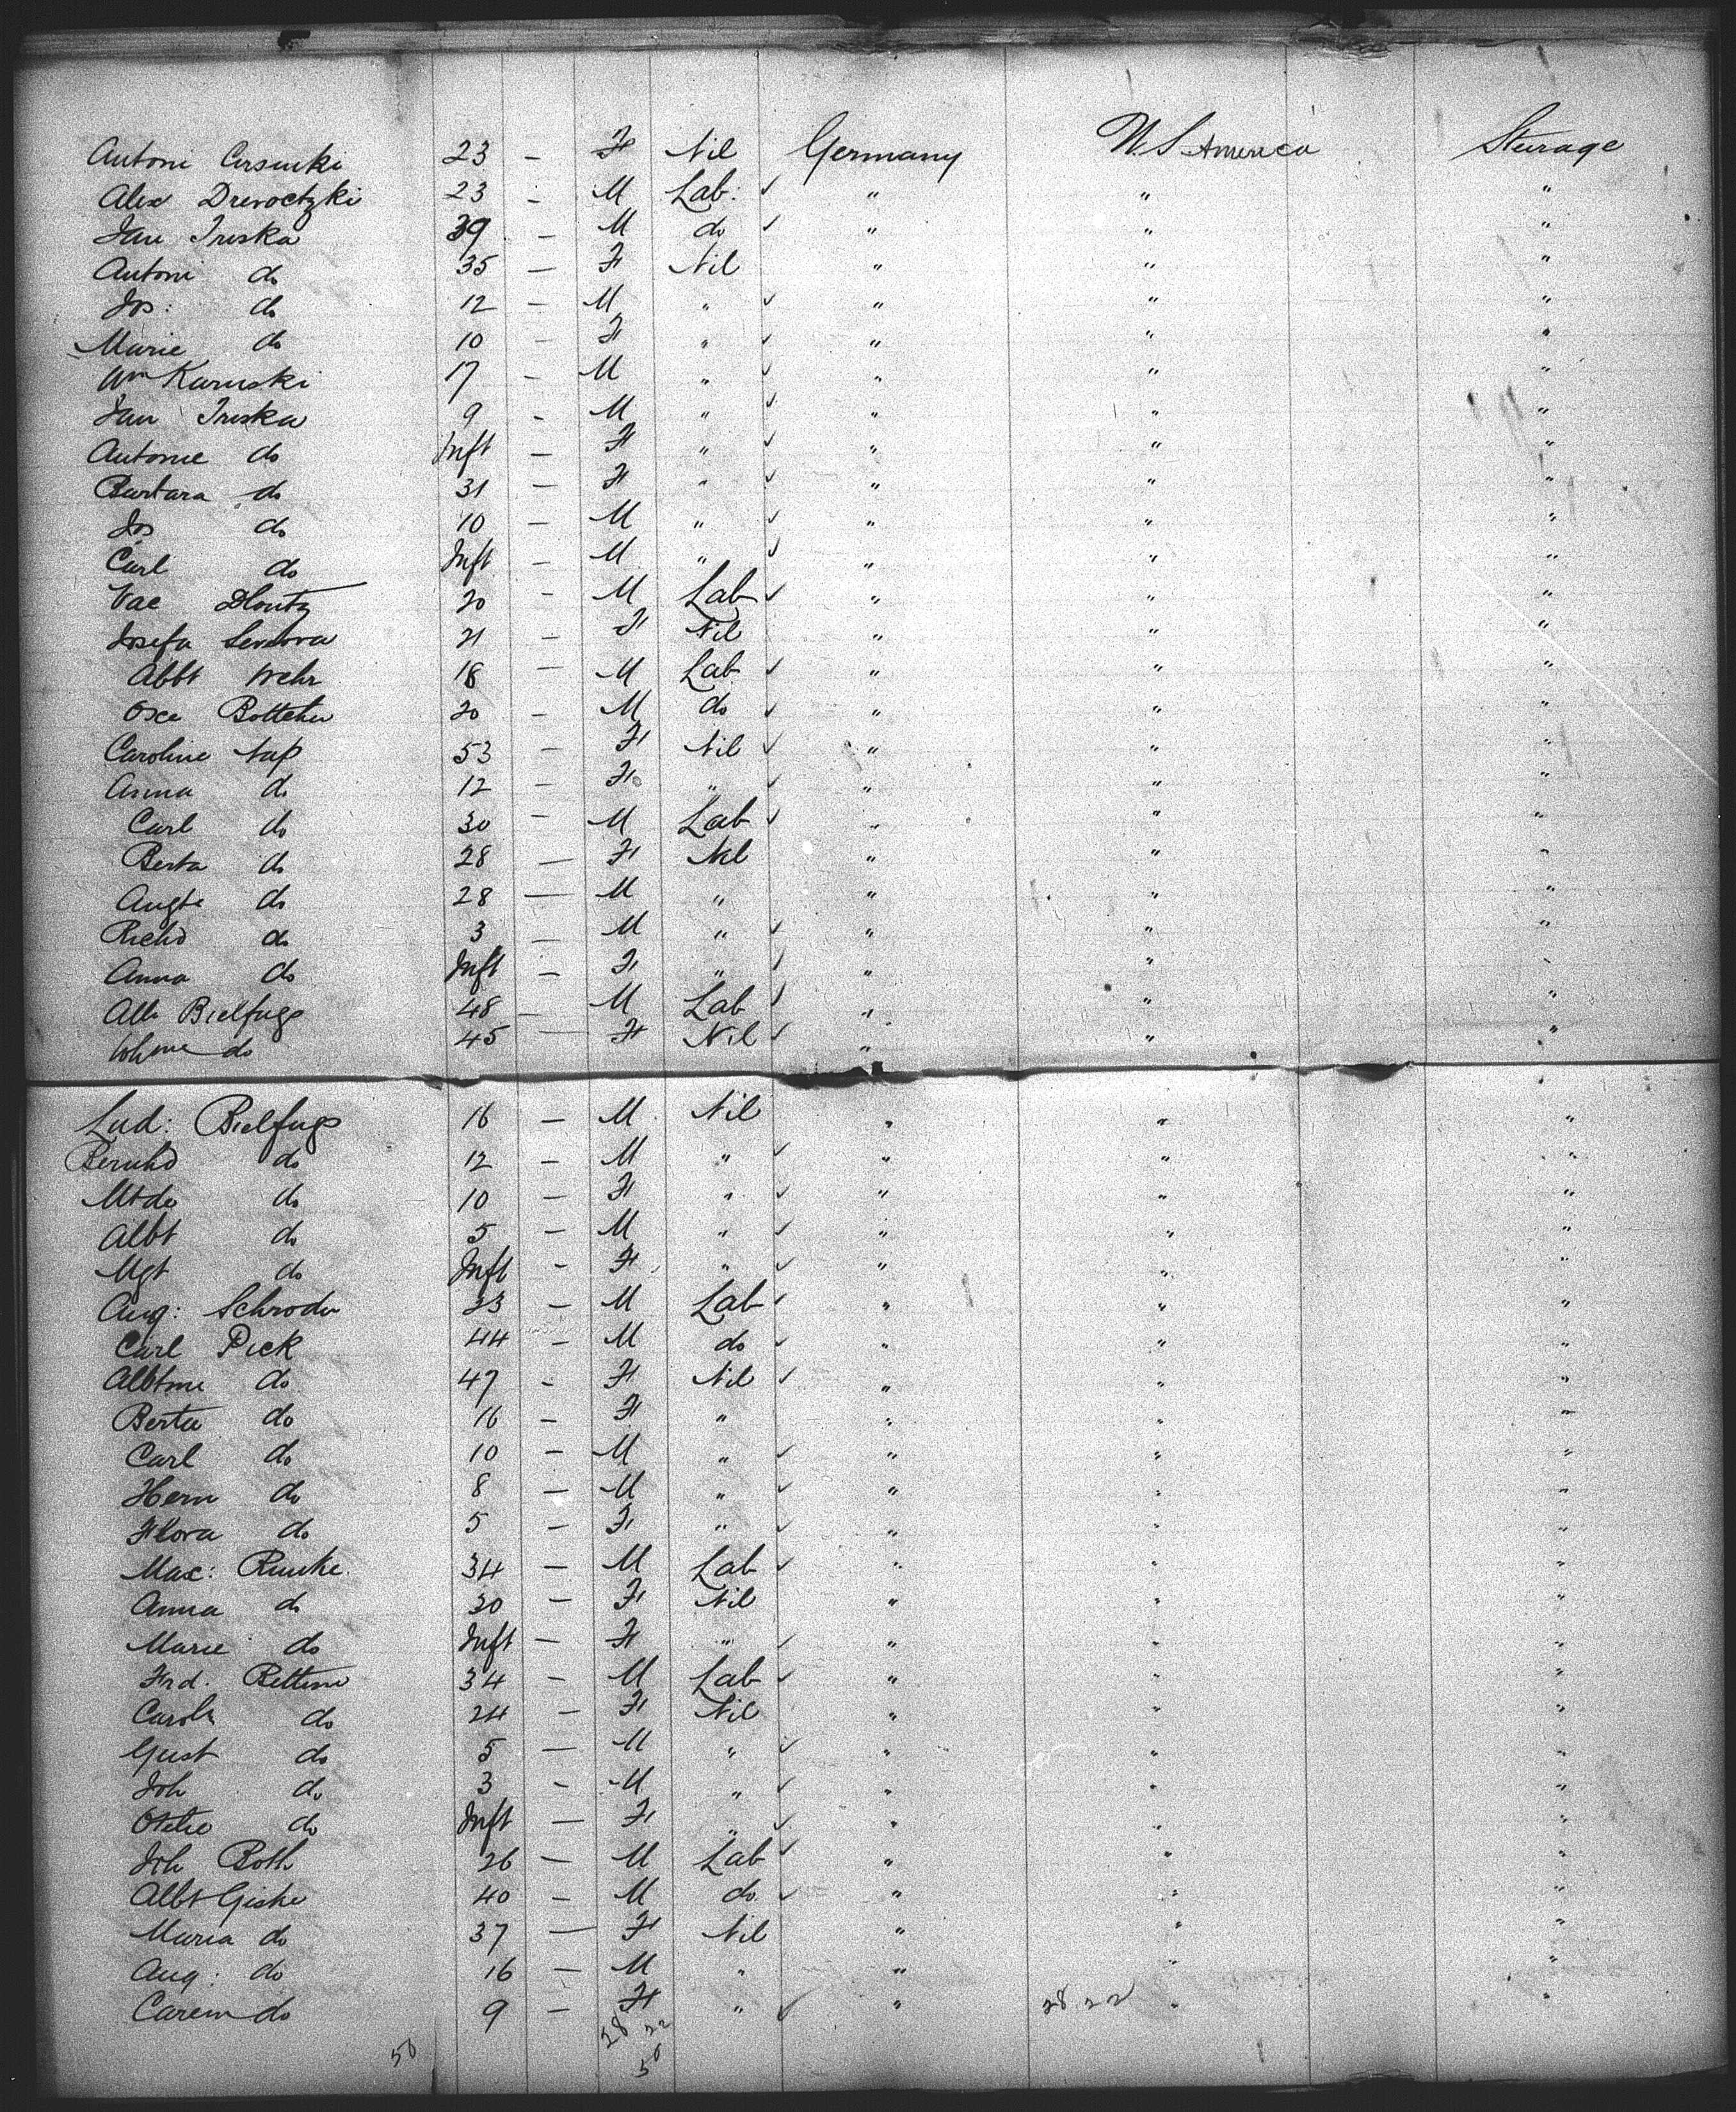 Antoni Cersinski 23 – F Nil Germany U. S. America Steerage
Alex Drevoctzki 23 – M Lab: ✓ " " "
Jan Truska 39 – M do ✓ " " "
Antoni do 35 – F Nil " " "
Jos: do 12 – M " ✓ " " "
Marie do 10 – F " ✓ " " "
Wm Karuski 17 – M " ✓ " " "
Jan Truska 9 – M " ✓ " " "
Antonie do Inft – F " ✓ " " "
Barbara do 31 – F " ✓ " " "
Jos do 10 – M " ✓ " " "
Carl do Inft – M " ✓ " " "
Vac Dloutz 20 – M Lab ✓ " " "
Josefa 21 – F Nil " " "
Albt Wehr 18 – M Lab ✓ " " "
Osca Bottcher 20 – M do ✓ " " "
Caroline Aap 53 – F Nil ✓ " " "
Anna do 12 – F " ✓ " " "
Carl do 30 – M Lab ✓ " " "
Berta do 28 – F Nil " " "
Augte do 28 – M " " " "
Richd do 3 – M " ✓ " " "
Anna do Inft – F " ✓ " " "
Alb Bielfugs 48 – M Lab ✓ " " "
do 45 – F Nil ✓ " " "
Lud: Bielfugs 16 – M Nil " " "
Bernhd do 12 – M " ✓ " " "
Mtde do 10 – F " ✓ " " "
Albt do 5 – M " ✓ " " "
Mgt do Inft – F " ✓ " " "
Aug: Schroder 23 – M Lab ✓ " " "
Carl Pick 44 – M do ✓ " " "
Albtine do 47 – F Nil ✓ " " "
Berta do 16 – F " " " "
Carl do 10 – M " ✓ " " "
Herm do 8 – M " ✓ " " "
Flora do 5 – F " ✓ " " "
Max: Runke 34 – M Lab ✓ " " "
Anna do 30 – F Nil " " "
Marie do Inft – F " ✓ " " "
Frd. Bettin 34 – M Lab ✓ " " "
Carole do 24 – F Nil " " "
Gust do 5 – M " ✓ " " "
Joh do 3 – M " ✓ " " "
Otelie do Inft – F " ✓ " " "
Joh Both 26 – M Lab ✓ " " "
Albt Giske 40 – M do ✓ " " "
Maria do 37 – F Nil " " "
Aug: do 16 – M " " " "
Carem do 9 – F " ✓ " 28 22 " "
50 28 22
50